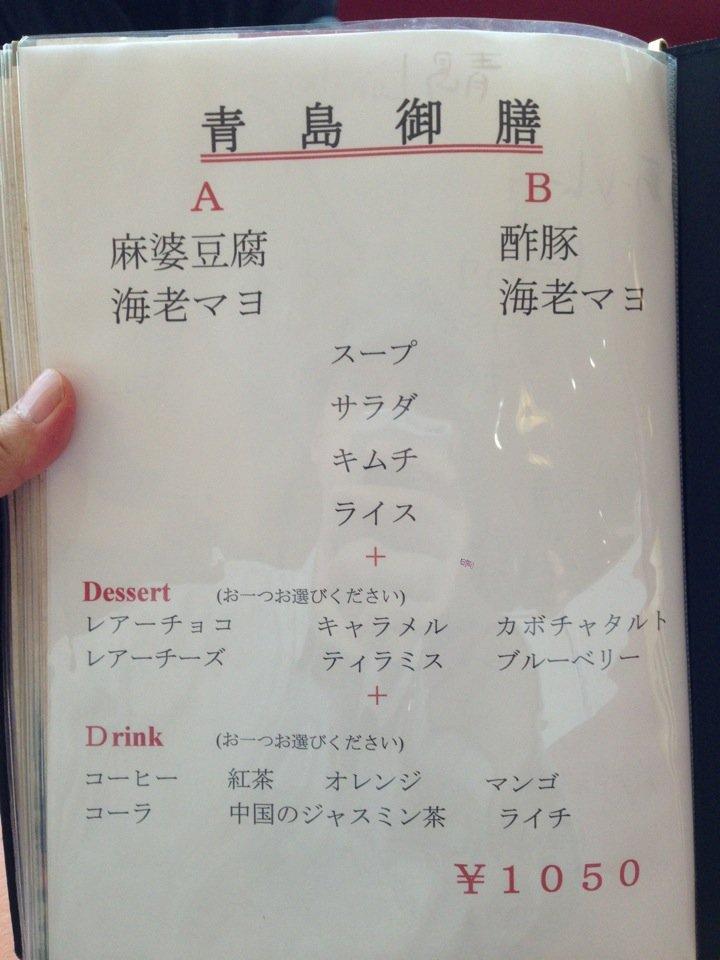 青島御膳
A B
麻婆豆腐 酢豚
海老マヨ 海老マヨ
スープ
サラダ
キムチ
ライス
+
Dessert (お一つお選びください)
レアーチョコ キャラメル カボチャタルト
レアーチーズ ティラミス ブルーベリー
+
Drink (お一つお選びください)
コーヒー 紅茶 オレンジ マンゴ
コーラ 中国のジャスミン茶 ライチ
￥１０５０